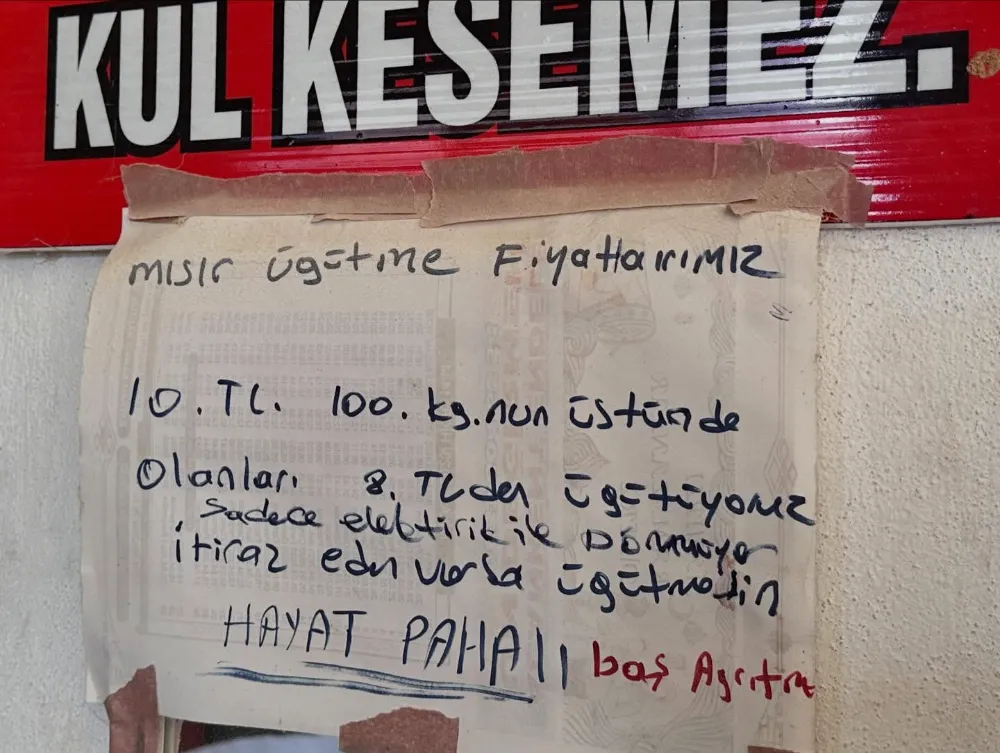 KUL KESEMEZ.
mısır ügütme Fiyatlarımız
10. TL. 100. kg. nun üstünde
Olanları 8. TLden ügütüyoruz
Sadece elektirik ile Dönmüyor
itiraz eden varsa ügütmesin
HAYAT PAHALI baş Agrıtma